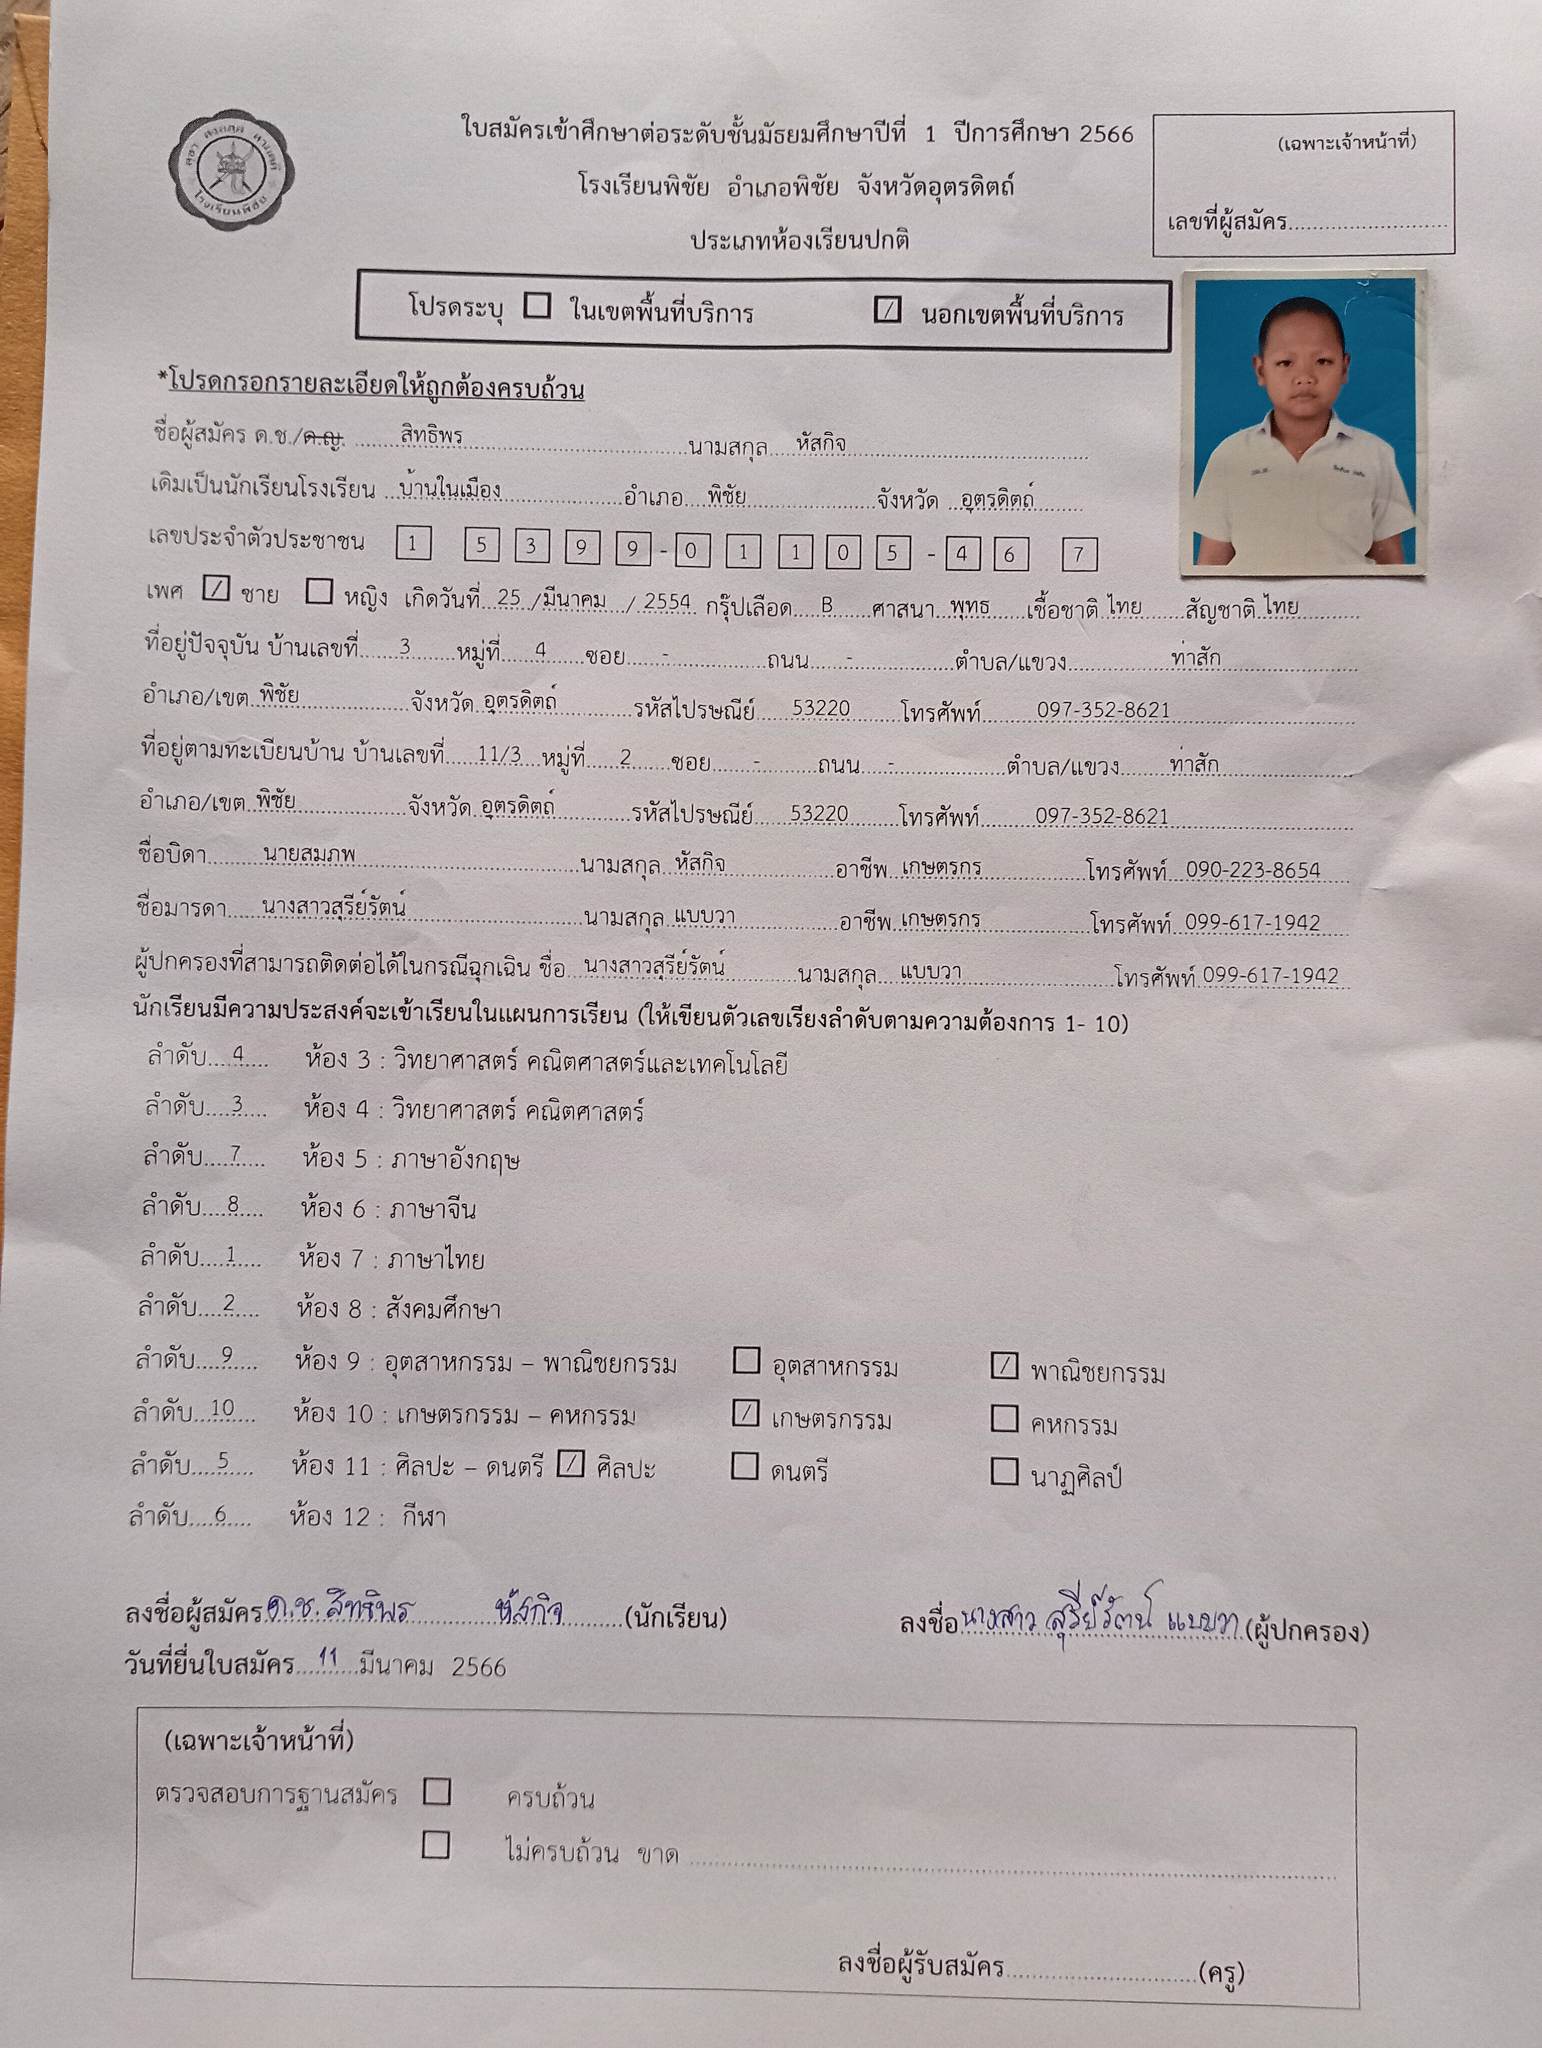 ใบสมัครเข้าศึกษาต่อระดับชั้นมัธยมศึกษาปีที่ 1 ปีการศึกษา 2566
(เฉพาะเจ้าหน้าที่)
โรงเรียนพิชัย อำเภอพิชัย จังหวัดอุตรดิตถ์
เลขที่ผู้สมัคร
ประเภทห้องเรียนปกติ
โรงเรียนพิชัย
โปรดระบุ ☐ ในเขตพื้นที่บริการ ☑ นอกเขตพื้นที่บริการ
*โปรดกรอกรายละเอียดให้ถูกต้องครบถ้วน
ชื่อผู้สมัคร ด.ช./ด.ญ. สิทธิพร นามสกุล หัสกิจ
เดิมเป็นนักเรียนโรงเรียน บ้านในเมือง อำเภอ พิชัย จังหวัด อุตรดิตถ์
เลขประจำตัวประชาชน 1 5 3 9 9 - 0 1 1 0 5 - 4 6 7
เพศ ☑ ชาย ☐ หญิง เกิดวันที่ 25 / มีนาคม / 2554 กรุ๊ปเลือด B ศาสนา พุทธ เชื้อชาติ ไทย สัญชาติ ไทย
ที่อยู่ปัจจุบัน บ้านเลขที่ 3 หมู่ที่ 4 ซอย - ถนน - ตำบล/แขวง ท่าสัก
อำเภอ/เขต พิชัย จังหวัด อุตรดิตถ์ รหัสไปรษณีย์ 53220 โทรศัพท์ 097-352-8621
ที่อยู่ตามทะเบียนบ้าน บ้านเลขที่ 11/3 หมู่ที่ 2 ซอย - ถนน - ตำบล/แขวง ท่าสัก
อำเภอ/เขต พิชัย จังหวัด อุตรดิตถ์ รหัสไปรษณีย์ 53220 โทรศัพท์ 097-352-8621
ชื่อบิดา นายสมภพ นามสกุล หัสกิจ อาชีพ เกษตรกร โทรศัพท์ 090-223-8654
ชื่อมารดา นางสาวสุรีย์รัตน์ นามสกุล แบบวา อาชีพ เกษตรกร โทรศัพท์ 099-617-1942
ผู้ปกครองที่สามารถติดต่อได้ในกรณีฉุกเฉิน ชื่อ นางสาวสุรีย์รัตน์ นามสกุล แบบวา โทรศัพท์ 099-617-1942
นักเรียนมีความประสงค์จะเข้าเรียนในแผนการเรียน (ให้เขียนตัวเลขเรียงลำดับตามความต้องการ 1- 10)
ลำดับ 4 ห้อง 3 : วิทยาศาสตร์ คณิตศาสตร์และเทคโนโลยี
ลำดับ 3 ห้อง 4 : วิทยาศาสตร์ คณิตศาสตร์
ลำดับ 7 ห้อง 5 : ภาษาอังกฤษ
ลำดับ 8 ห้อง 6 : ภาษาจีน
ลำดับ 1 ห้อง 7 : ภาษาไทย
ลำดับ 2 ห้อง 8 : สังคมศึกษา
ลำดับ 9 ห้อง 9 : อุตสาหกรรม – พาณิชยกรรม ☐ อุตสาหกรรม ☑ พาณิชยกรรม
ลำดับ 10 ห้อง 10 : เกษตรกรรม – คหกรรม ☑ เกษตรกรรม ☐ คหกรรม
ลำดับ 5 ห้อง 11 : ศิลปะ – ดนตรี ☑ ศิลปะ ☐ ดนตรี ☐ นาฏศิลป์
ลำดับ 6 ห้อง 12 : กีฬา
ลงชื่อผู้สมัคร ด.ช. สิทธิพร หัสกิจ (นักเรียน) ลงชื่อ นางสาว สุรีย์รัตน์ แบบวา (ผู้ปกครอง)
วันที่ยื่นใบสมัคร 11 มีนาคม 2566
(เฉพาะเจ้าหน้าที่)
ตรวจสอบการฐานสมัคร ☐ ครบถ้วน
☐ ไม่ครบถ้วน ขาด
ลงชื่อผู้รับสมัคร (ครู)